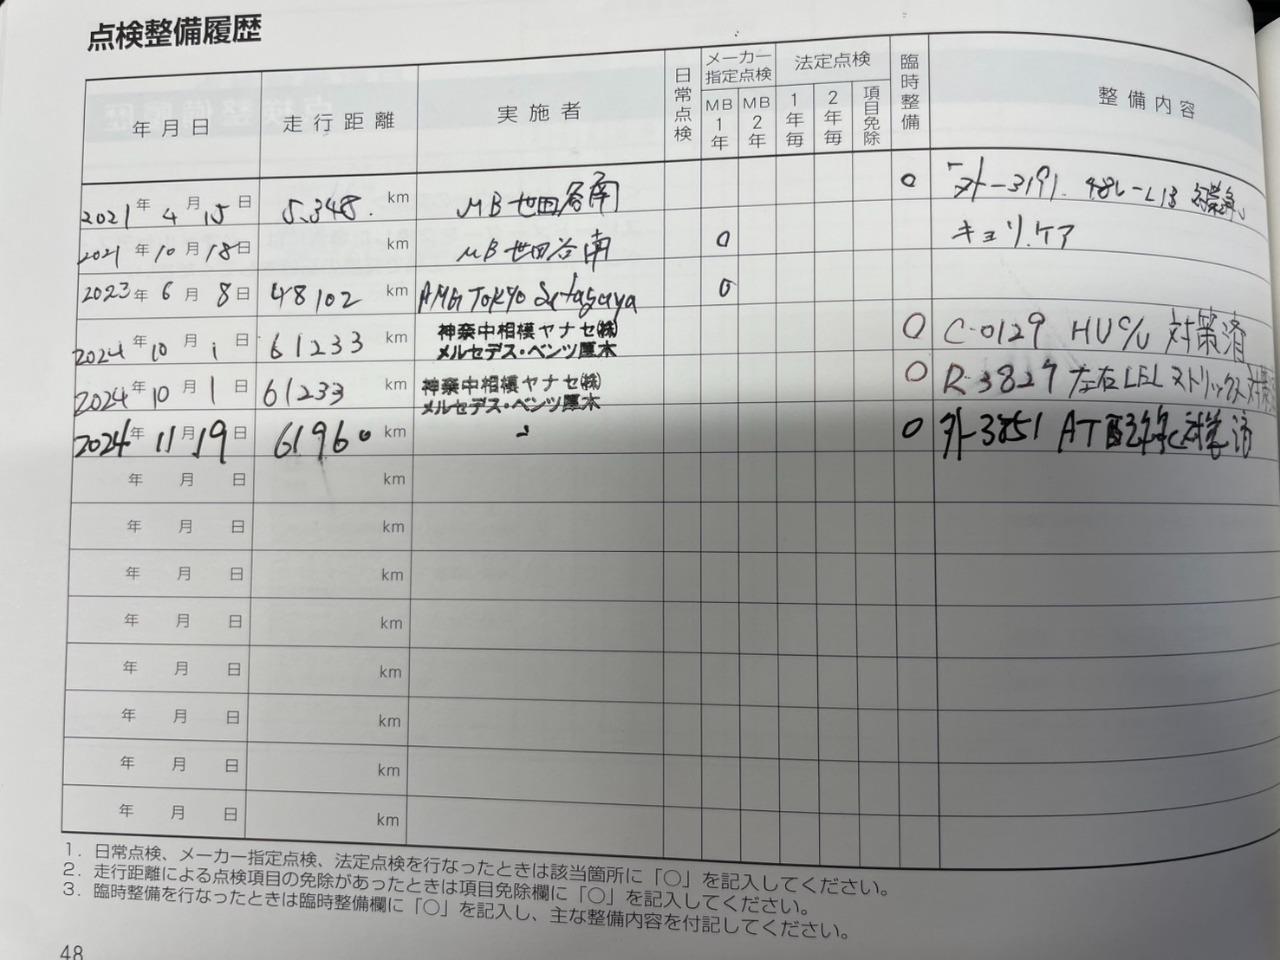 点検整備履歴
年月日 走行距離 実施者 日常点検 メーカー指定点検 法定点検 臨時整備 整備内容
MB1年 MB2年 1年毎 2年毎 項目免除
2021年 4月 15日 5,348. km MB 世田谷南 ○ 外-3191. 48V-LiB
2021年 10月 18日 km MB 世田谷南 ○ キョリ.ケア
2023年 6月 8日 48102 km AMG TOKYO Setagaya ○
2024年 10月 1日 61233 km 神奈中相模ヤナセ㈱ メルセデス・ベンツ厚木 ○ C-0129 HU% 対策済
2024年 10月 1日 61233 km 神奈中相模ヤナセ㈱ メルセデス・ベンツ厚木 ○ R-3827 左右
2024年 11月 19日 61960 km 〃 ○ 外-3851 AT
年 月 日 km
年 月 日 km
年 月 日 km
年 月 日 km
年 月 日 km
年 月 日 km
年 月 日 km
年 月 日 km
1. 日常点検、メーカー指定点検、法定点検を行なったときは該当箇所に「○」を記入してください。
2. 走行距離による点検項目の免除があったときは項目免除欄に「○」を記入してください。
3. 臨時整備を行なったときは臨時整備欄に「○」を記入し、主な整備内容を付記してください。
48